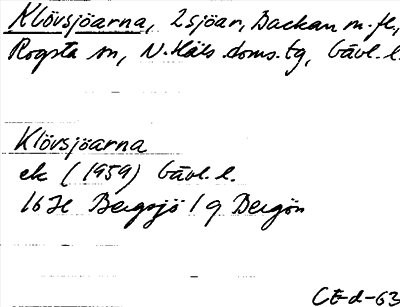 Klövsjöarna, 2 sjöar, Backan m. fl,
Rogsta sn, N. Häls. doms. tg, Gävl. l.
Klövsjöarna
ek (1959) Gävl. l.
16H Bergsjö / 9 Bergön
CE-d-63